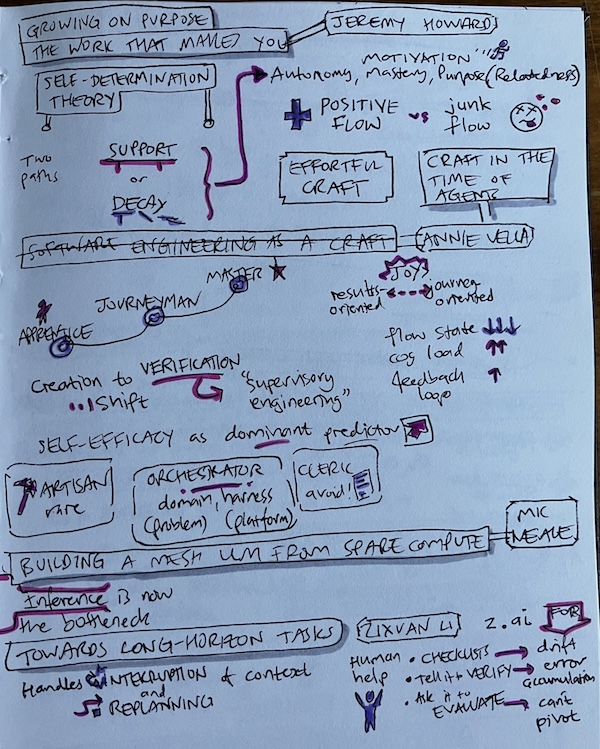 GROWING ON PURPOSE
THE WORK THAT MAKES YOU
JEREMY HOWARD
SELF-DETERMINATION
THEORY
MOTIVATION
Autonomy, Mastery, Purpose (Relatedness)
POSITIVE
FLOW
vs
junk
flow
Two
paths
SUPPORT
or
DECAY
EFFORTFUL
CRAFT
CRAFT IN THE
TIME OF
AGENTS
SOFTWARE ENGINEERING AS A CRAFT
ANNIE VELLA
APPRENTICE
JOURNEYMAN
MASTER
JOY
results-
oriented
journey
oriented
flow state
cog load
feedback
loop
Creation to VERIFICATION
shift
"supervisory
engineering"
SELF-EFFICACY as dominant predictor
ARTISAN
rare
ORCHESTRATOR
domain, harness
(problem) (platform)
CLERIC
avoid!
BUILDING A MESH LLM FROM SPARE COMPUTE
MIC
NEALE
Inference is now
the bottleneck
TOWARDS LONG-HORIZON TASKS
ZIXUAN LI
z.ai
FOR
Handles INTERRUPTION of context
and
REPLANNING
Human
help
• CHECKLISTS
• Tell it to VERIFY
• Ask it to
EVALUATE
drift
error
accumulation
can't
pivot